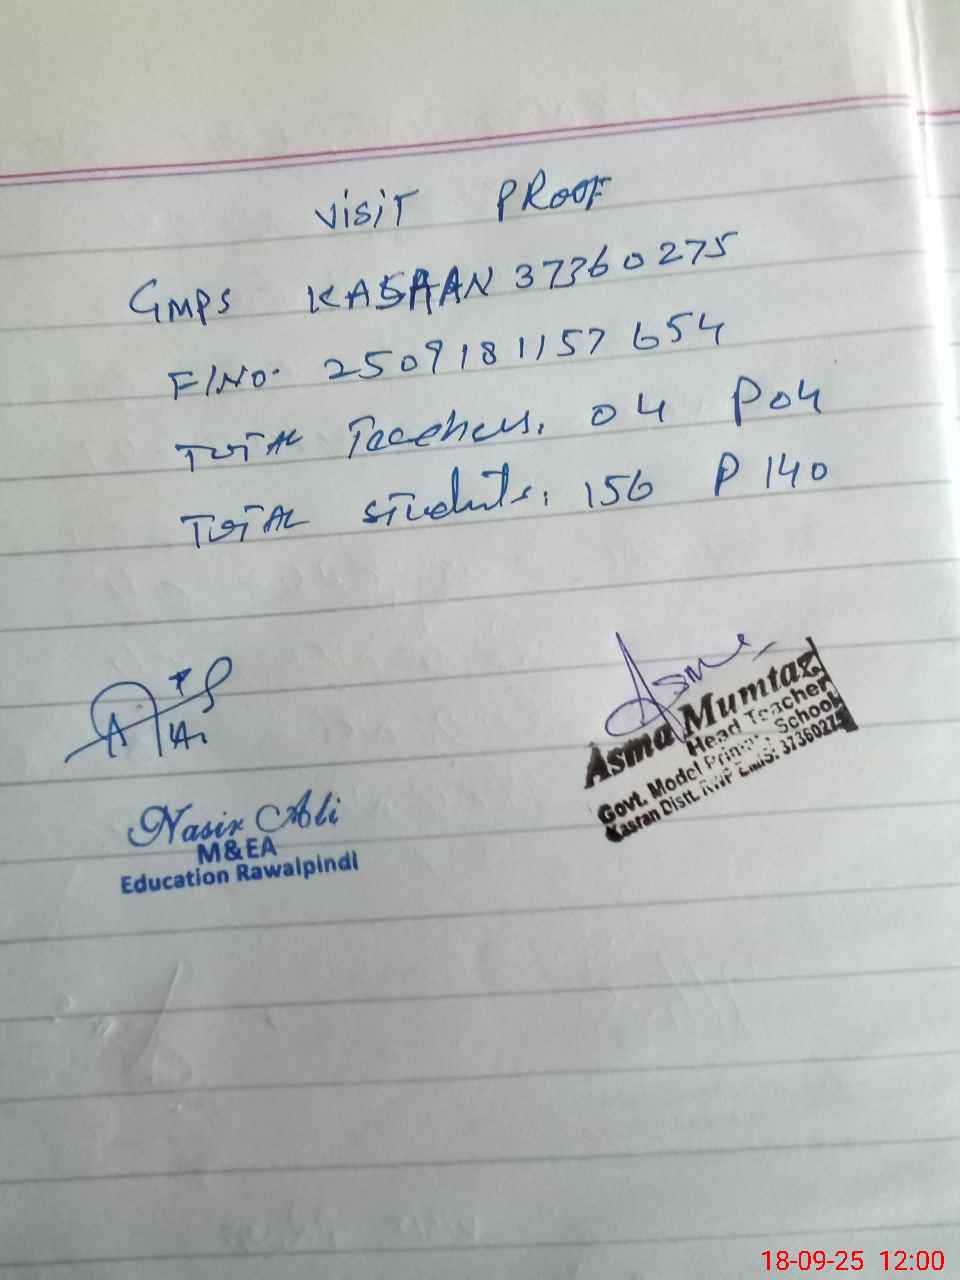 VISIT PROOF
GMPS KASRAN 37360275
F/NO. 2509181157654
TOTAL Teachers. 04 P 04
TOTAL Students. 156 P 140
Asma
Asma Mumtaz
Head Teacher
Govt. Model Primary School
Kasran Distt. RWP EMIS: 37360275
Nasir Ali
M&EA
Education Rawalpindi
18-09-25 12:00